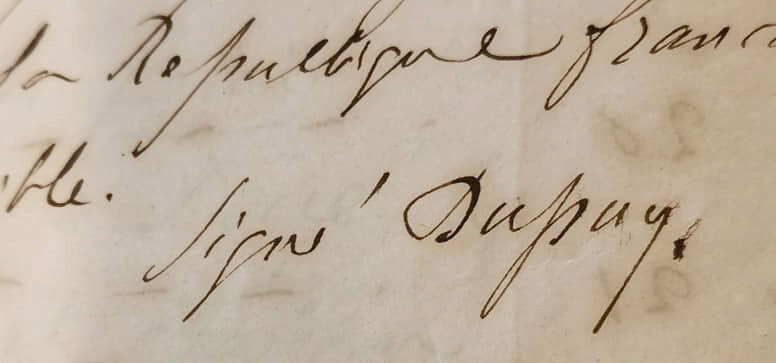 la Republique franc
ible.
Signé Dupuy.